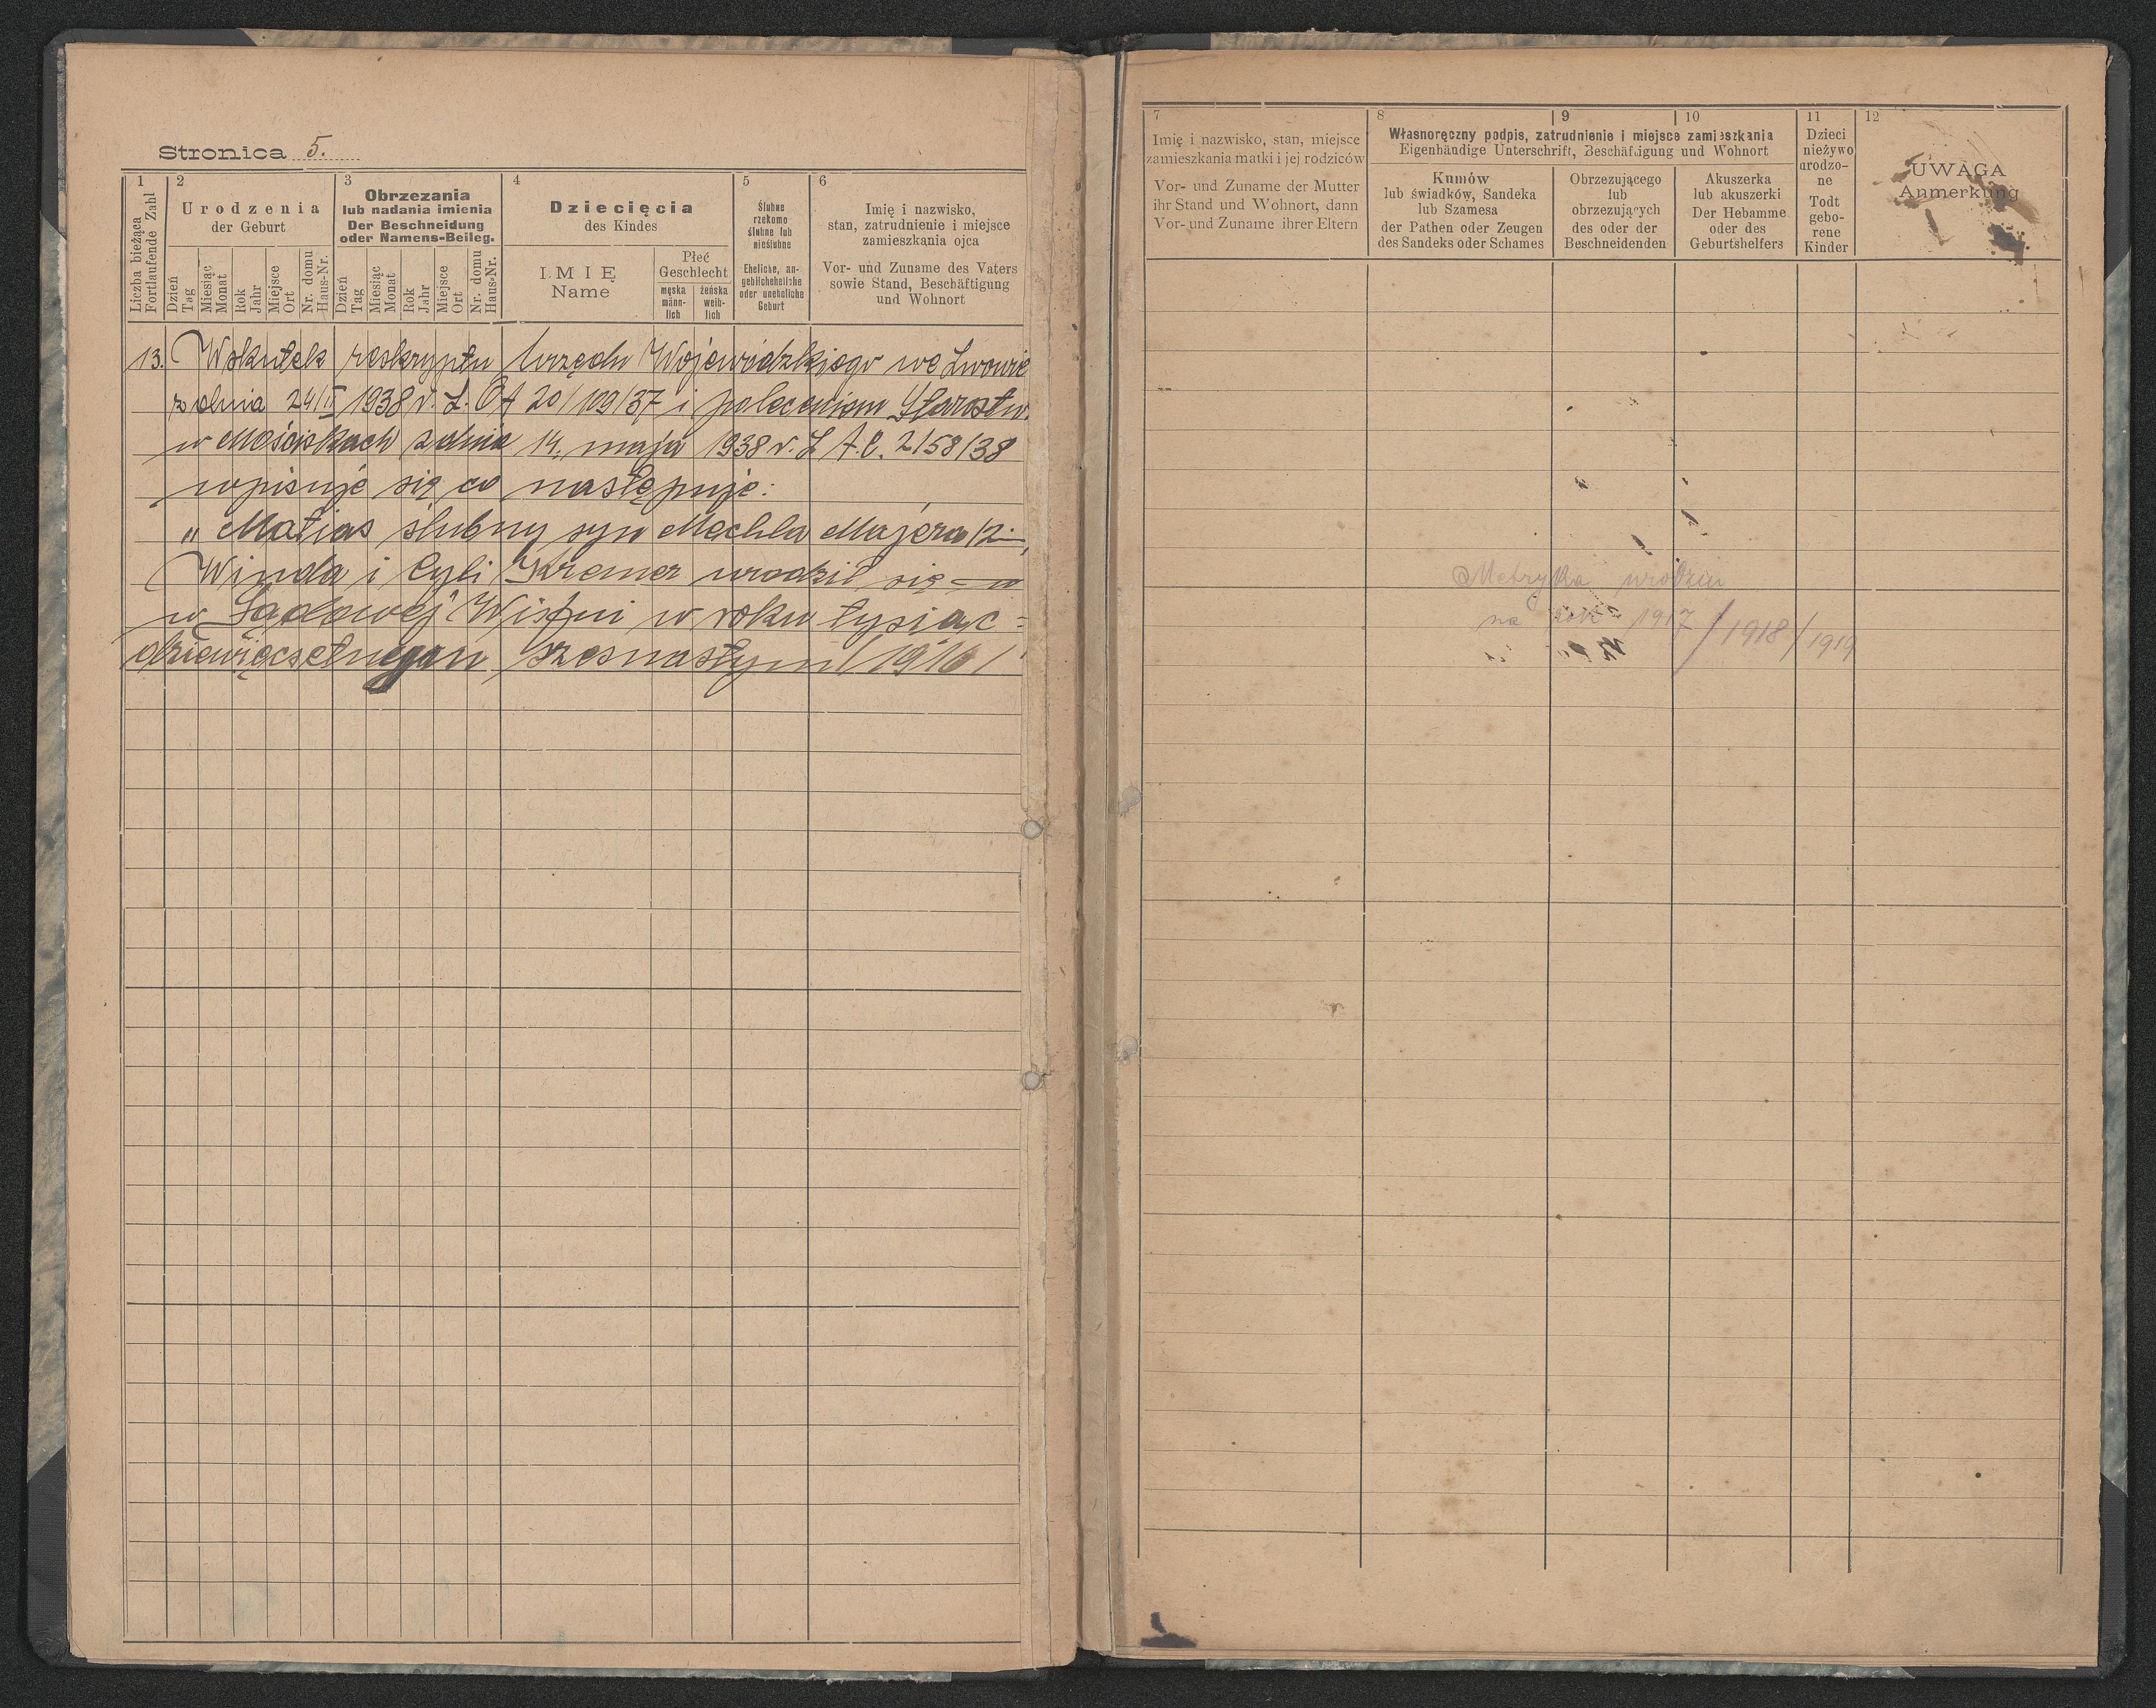 Stronica 5.
1
Liczba bieżąca
Fortlaufende Zahl
2
Urodzenia
der Geburt
Dzień
Tag
Miesiąc
Monat
Rok
Jahr
Miejsce
Ort
Nr. domu
Haus-Nr.
3
Obrzezania
lub nadania imienia
Der Beschneidung
oder Namens-Beileg.
Dzień
Tag
Miesiąc
Monat
Rok
Jahr
Miejsce
Ort
Nr. domu
Haus-Nr.
4
Dziecięcia
des Kindes
IMIĘ
Name
Płeć
Geschlecht
męska
männ-
lich
żeńska
weib-
lich
5
Ślubne
rzekomo
ślubne lub
nieślubne
Eheliche, an-
geblicheheliche
oder uneheliche
Geburt
6
Imię i nazwisko,
stan, zatrudnienie i miejsce
zamieszkania ojca
Vor- und Zuname des Vaters
sowie Stand, Beschäftigung
und Wohnort
13. Wskutek reskryptu Urzędu Wojewódzkiego we Lwowie
z dnia 24/II 1938 r. L. 20/109/37 i poleceniem Starostw.
w Mościskach z dnia 14. maja 1938 r. L A.C. 2/58/38
wpisuje się co następuje:
„Matias ślubny syn Mechla Majera /2
Winda i Cyli Kremer urodził się
w Sądowej Wiszni w roku tysiąc =
dziewięcsetnym szesnastym /1916/
7
Imię i nazwisko, stan, miejsce
zamieszkania matki i jej rodziców
Vor- und Zuname der Mutter
ihr Stand und Wohnort, dann
Vor- und Zuname ihrer Eltern
8
9
10
Własnoręczny podpis, zatrudnienie i miejsce zamieszkania
Eigenhändige Unterschrift, Beschäftigung und Wohnort
Kumów
lub świadków, Sandeka
lub Szamesa
der Pathen oder Zeugen
des Sandeks oder Schames
Obrzezującego
lub
obrzezujących
des oder der
Beschneidenden
Akuszerka
lub akuszerki
Der Hebamme
oder des
Geburtshelfers
11
Dzieci
nieżywo
urodzo-
ne
Todt
gebo-
rene
Kinder
12
UWAGA
Anmerkung
Metryka urodzin
na rok 1917 / 1918 / 1919